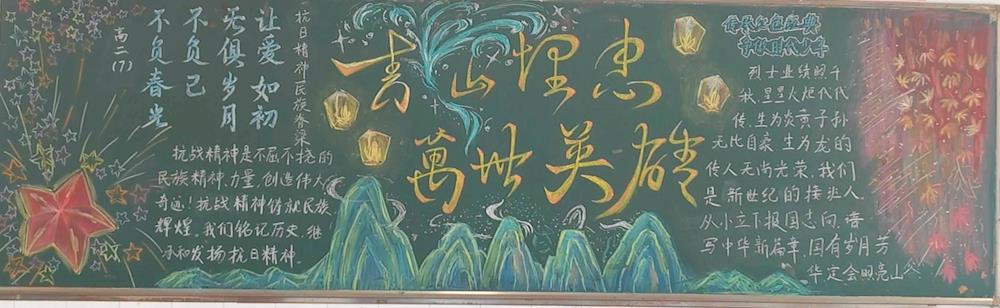 抗日精神民族脊梁
让爱如初
无俱岁月
不负已
不负春光
高二(7)
抗战精神是不屈不挠的
民族精神.力量,创造伟大
奇迹!抗战精神铸就民族
辉煌,我们铭记历史,继
承和发扬抗日精神.
青山埋忠
萬世英雄
传承红色经典
争做时代少年
烈士业绩照千
秋,星星火炬代代
传.生为炎黄子孙
无比自豪 生为龙的
传人无尚光荣.我们
是新世纪的接班人
从小立下报国志向.谱
写中华新篇章,国有岁月芳
华定会照亮山